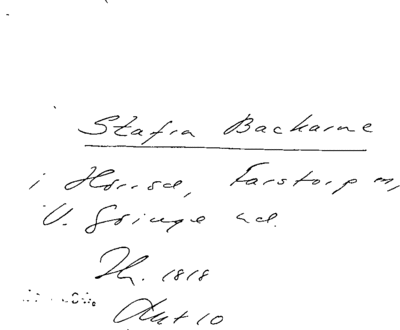 Stafra Backarne
i Hörröd, Farstorp m,
V. Göinge hd.
Th. 1818
Ant 10